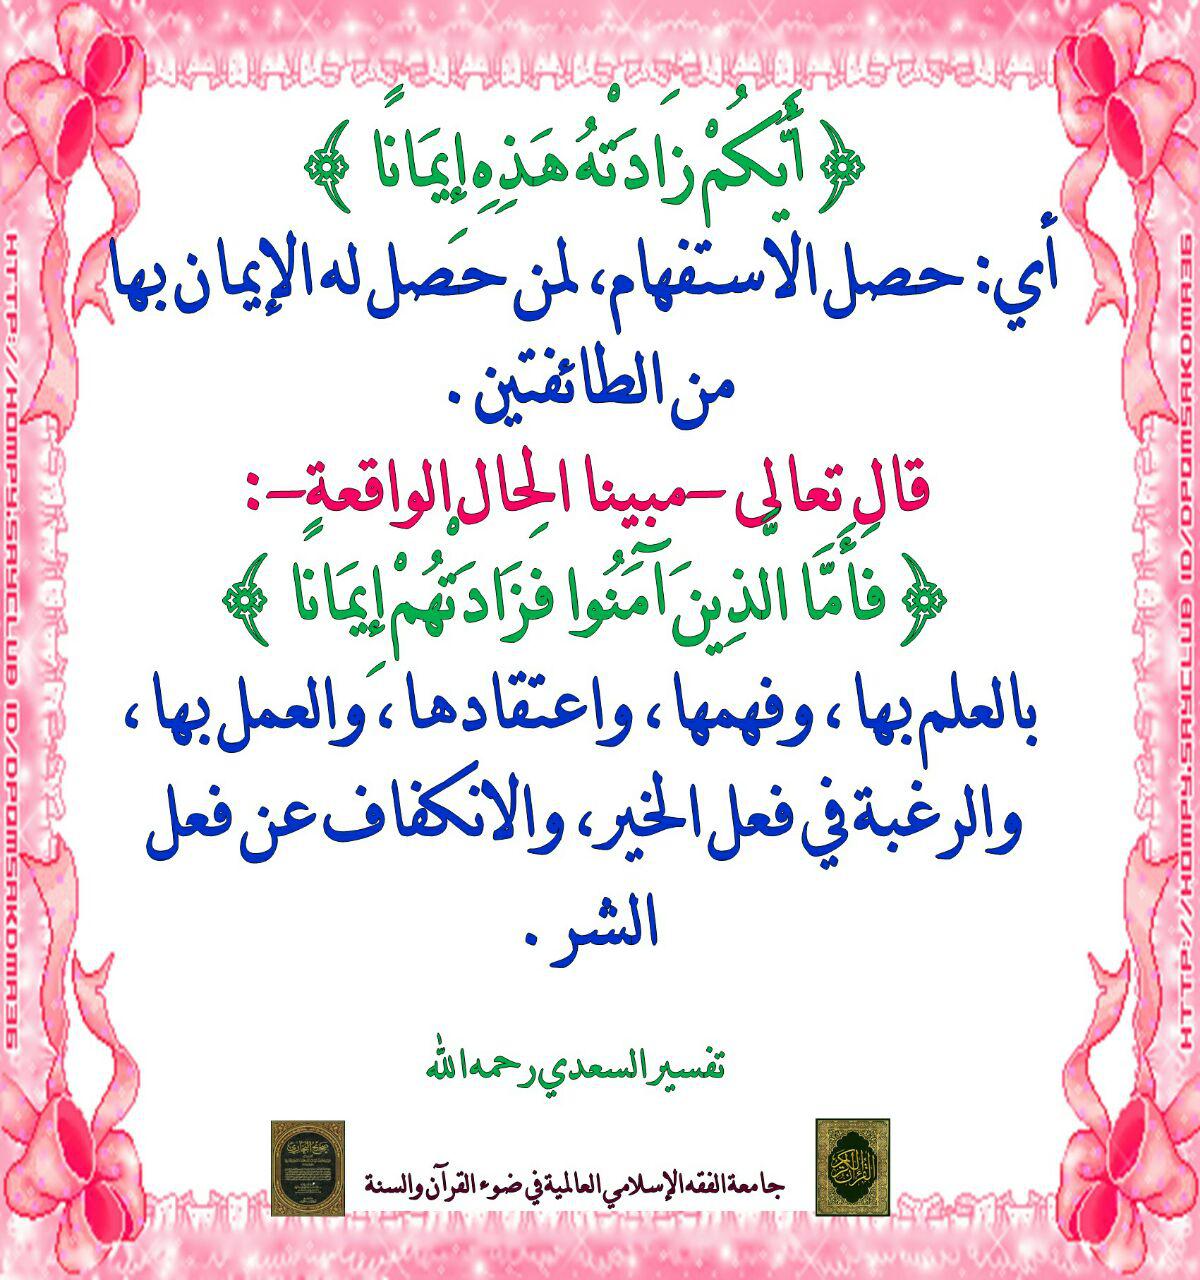 ﴿ أَيُّكُمْ زَادَتْهُ هَذِهِ إِيمَانًا ﴾
أي: حصل الاستفهام، لمن حصل له الإيمان بها
من الطائفتين .
قال تعالى –مبينا الحال الواقعة–:
﴿ فَأَمَّا الَّذِينَ آمَنُوا فَزَادَتْهُمْ إِيمَانًا ﴾
بالعلم بها ، وفهمها ، واعتقادها ، والعمل بها ،
والرغبة في فعل الخير، والانكفاف عن فعل
الشر .
تفسير السعدي رحمه الله
جامعة الفقه الإسلامي العالمية في ضوء القرآن والسنة
القرآن الكريم
صحيح البخاري
HTTP://HOMPY.SAYCLUB ID/DPOMSAKDMA36
HTTP://HOMPY.SAYCLUB ID/DPOMSAKDMA36